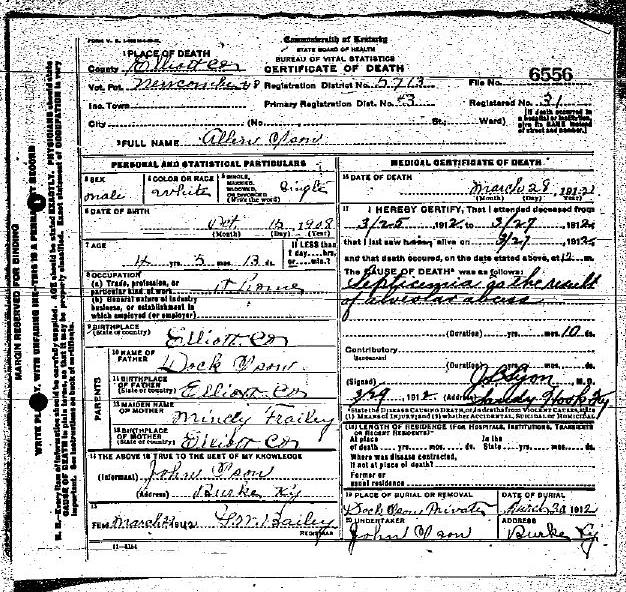 Commonwealth of Kentucky
STATE BOARD OF HEALTH
BUREAU OF VITAL STATISTICS
CERTIFICATE OF DEATH
1 PLACE OF DEATH
County Elliott Co
Vot. Pct. Newcombe Registration District No. 5713 File No. 6556
Inc. Town Primary Registration Dist. No. 43 Registered No. 31
City (No. St.; Ward) [If death occurred in a hospital or institution, give its NAME instead of street and number.]
2 FULL NAME
PERSONAL AND STATISTICAL PARTICULARS
3 SEX male
4 COLOR OR RACE White
5 SINGLE, MARRIED, WIDOWED, OR DIVORCED (Write the word) Single
6 DATE OF BIRTH
Oct 15 1908
(Month) (Day) (Year)
7 AGE
yrs. 5 mos. 13 ds.
If LESS than 1 day, hrs. or min.?
8 OCCUPATION
(a) Trade, profession, or particular kind of work At Home
(b) General nature of industry business, or establishment in which employed (or employer)
9 BIRTHPLACE (State or country) Elliott Co
PARENTS
10 NAME OF FATHER Dock Ison
11 BIRTHPLACE OF FATHER (State or country) Elliott Co
12 MAIDEN NAME OF MOTHER Mindy Frailey
13 BIRTHPLACE OF MOTHER (State or country) Elliott Co
14 THE ABOVE IS TRUE TO THE BEST OF MY KNOWLEDGE
(Informant) John Ison
(Address) Burke Ky
15
Filed March 1912
REGISTRAR
11-3184
MEDICAL CERTIFICATE OF DEATH
16 DATE OF DEATH
March 28, 1912
(Month) (Day) (Year)
17 I HEREBY CERTIFY, That I attended deceased from
3/25 1912, to 3/27 1912,
that I last saw alive on 3/27 1912,
and that death occured, on the date stated above, at 12 m.
The CAUSE OF DEATH* was as follows:
Septicemia as the result
of alveolar abcess
(Duration) yrs. mos. 10 ds.
Contributory
(Secondary)
(Duration) yrs. mos. ds.
(Signed) M. D.
3/29 1912 (Address) Sandy Hook Ky
*State the DISEASE CAUSING DEATH, or, in deaths from VIOLENT CAUSES, state (1) MEANS OF INJURY; and (2) whether ACCIDENTAL, SUICIDAL or HOMICIDAL.
18 LENGTH OF RESIDENCE (FOR HOSPITALS, INSTITUTIONS, TRANSIENTS OR RECENT RESIDENTS)
At place of death yrs. mos. ds. In the State yrs. mos. ds.
Where was disease contracted, if not at place of death?
Former or usual residence
19 PLACE OF BURIAL OR REMOVAL Dock Ison Private
DATE OF BURIAL March 30 1912
20 UNDERTAKER John Ison
ADDRESS Burke Ky
MARGIN RESERVED FOR BINDING